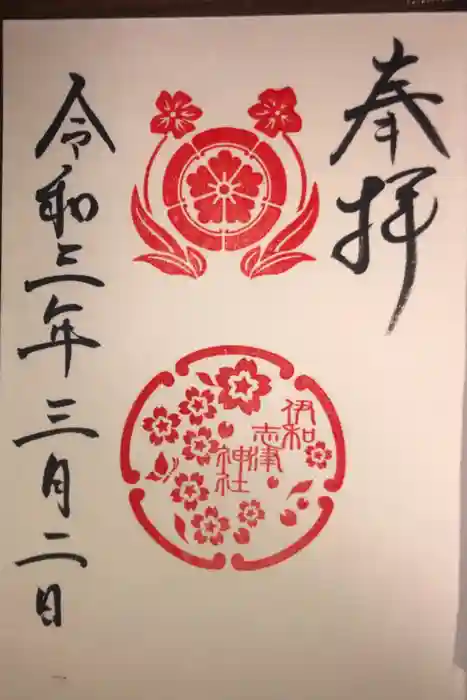 奉拝
伊和
志津
神社
令和三年三月二日